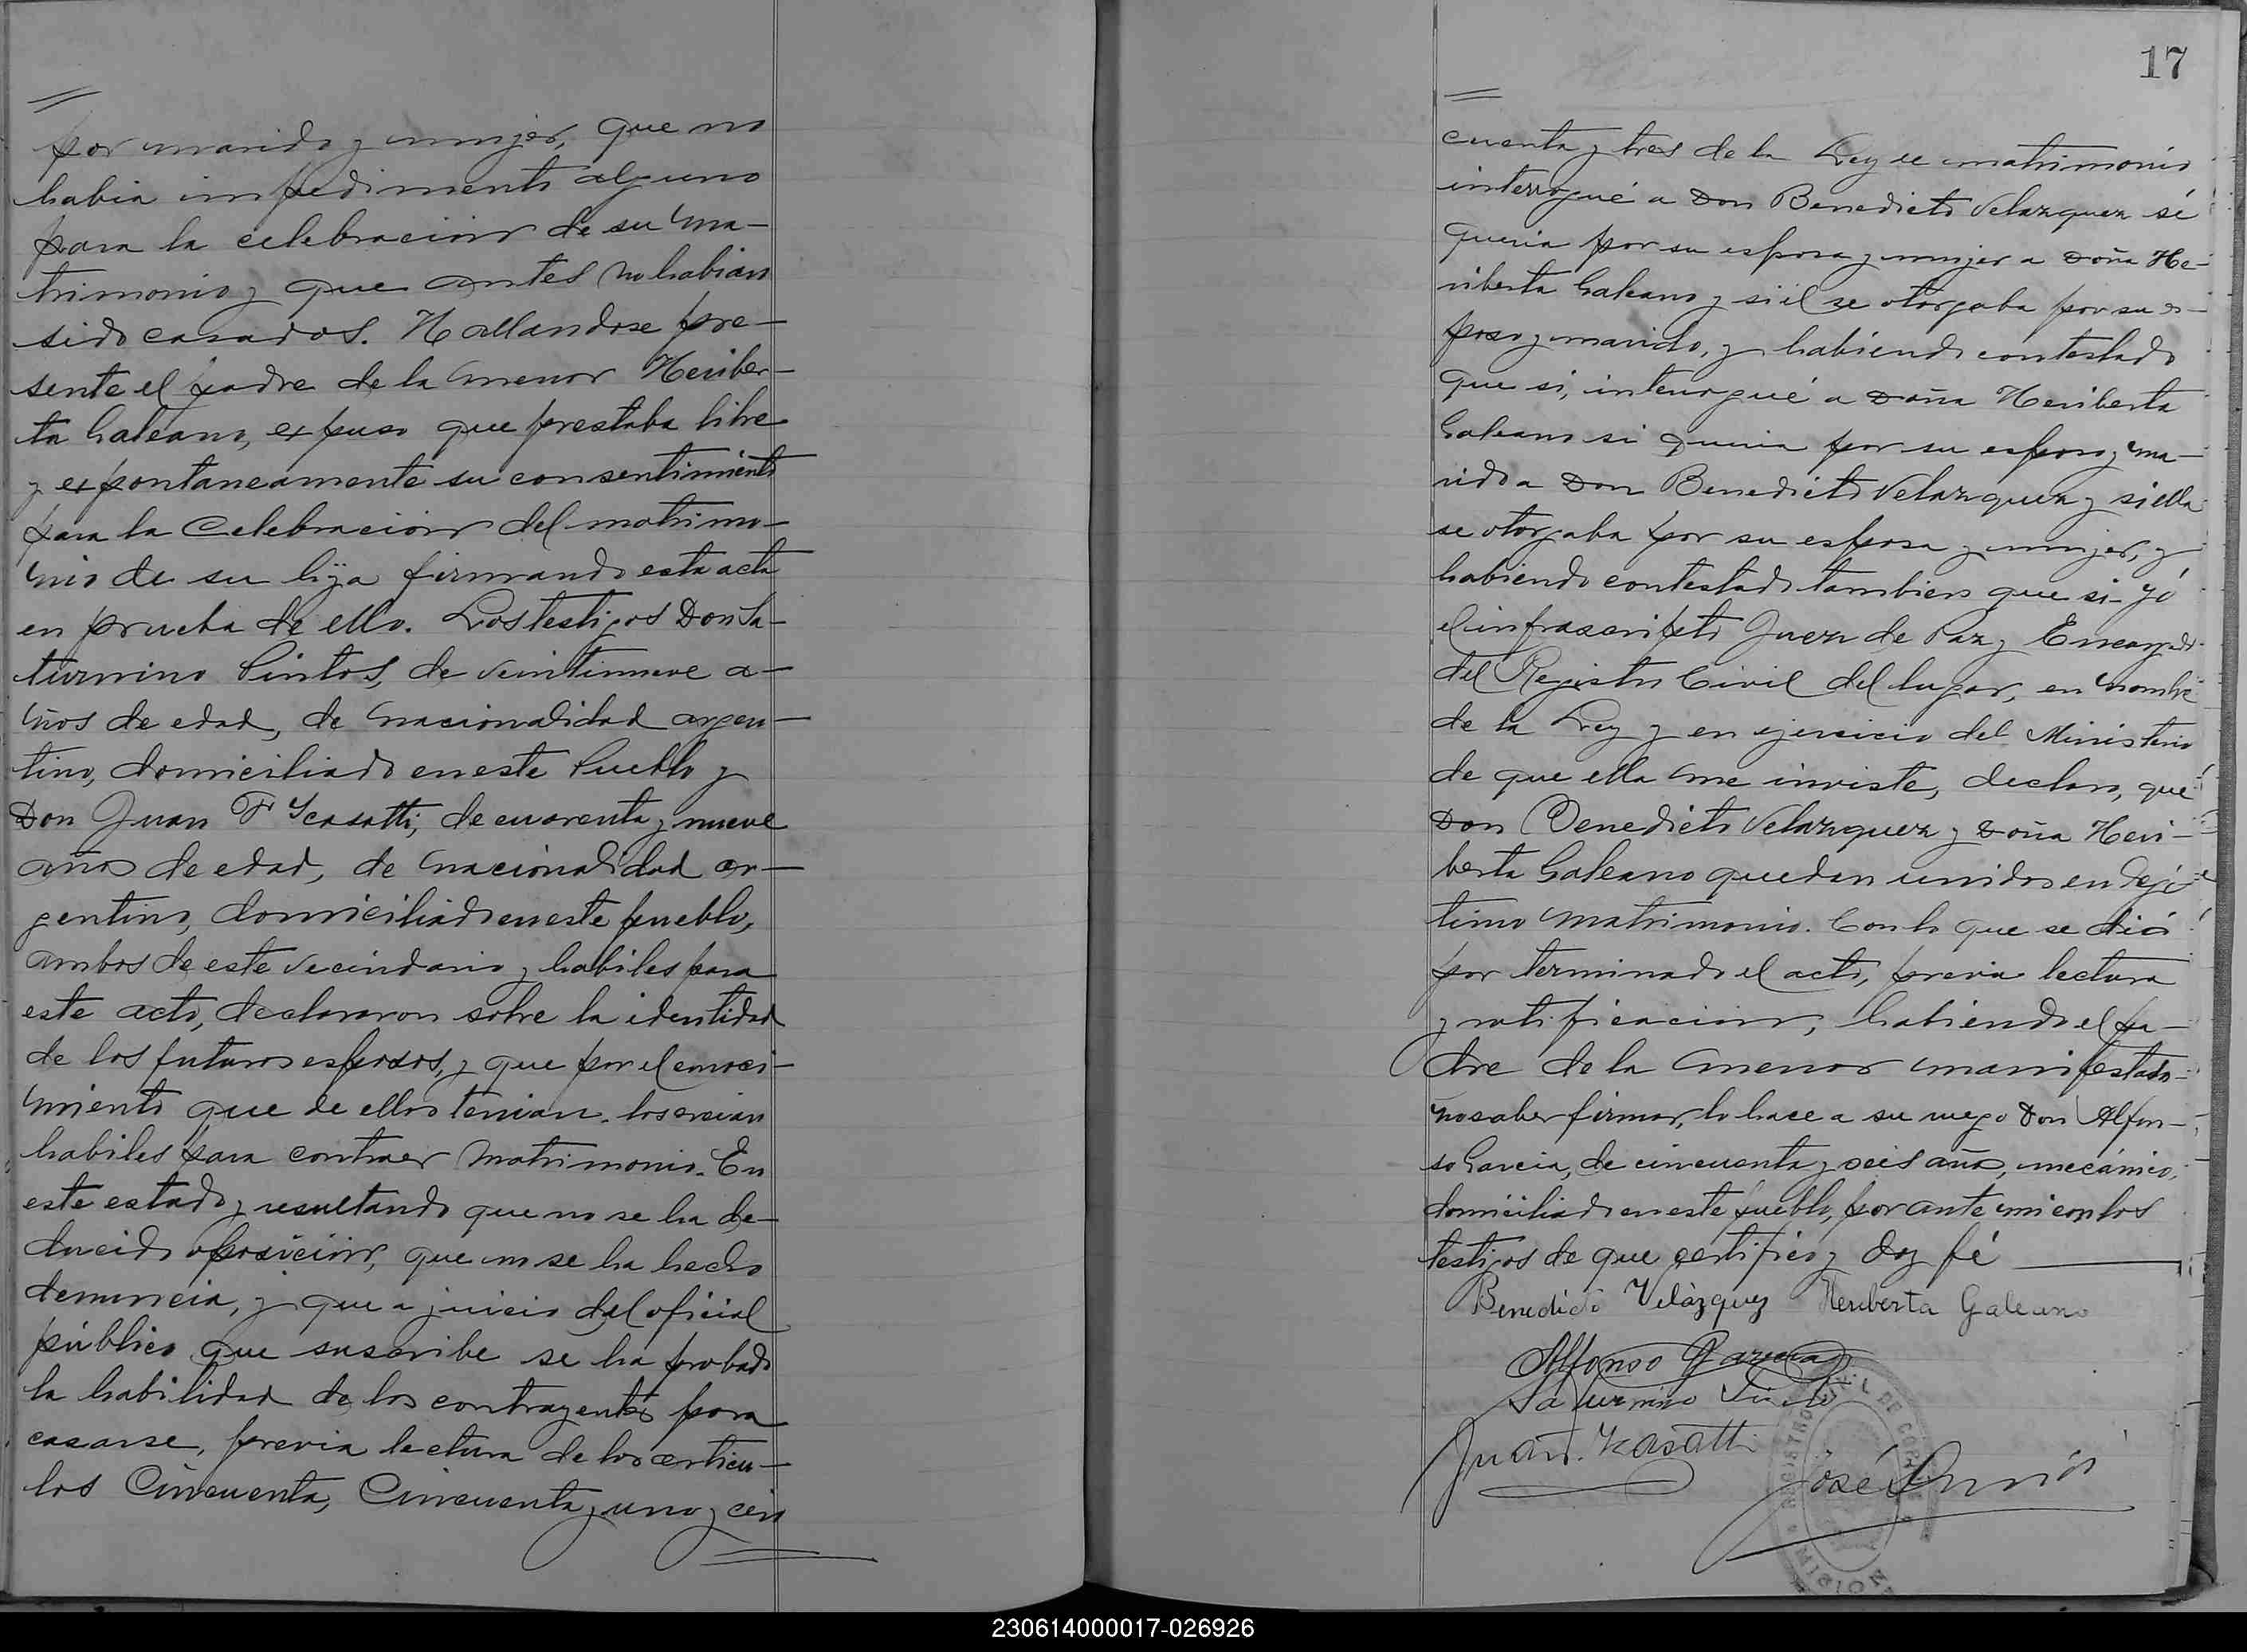 por marido y mujer, que no
habia impedimento alguno
para la celebracion de su ma-
trimonio y que antes no habian
sido casados. Hallandose pre-
sente el padre de la menor Heriber-
ta Galeano, expuso que prestaba libre
y expontaneamente su consentimiento
para la Celebracion del matrimo-
nio de su hija firmando esta acta
en prueba de ello. Los testigos Don Sa-
turnino Pintos, de veintinueve a-
ños de edad, de nacionalidad argen-
tino, domiciliado en este Pueblo y
Don Juan F Ycasatti, de cuarenta y nueve
años de edad, de nacionalidad ar-
gentino, domiciliado en este pueblo,
ambos de este vecindario y habiles para
este acto, declararon sobre la identidad
de los futuros esposos, y que por el conoci-
miento que de ellos tenian los creian
habiles para contraer matrimonio. En
este estado y resultando que no se ha de-
ducido oposicion, que no se ha hecho
denuncia, y que a juicio del oficial
público que suscribe se ha probado
la habilidad de los contrayentes para
casarse, previa lectura de los articu-
los Cincuenta, Cincuenta y uno y cin
17
cuenta y tres de la Ley de matrimonio
interrogué a Don Benedicto Velazquez si
queria por su esposa y mujer a Doña He-
riberta Galeano y si él se otorgaba por su es-
poso y marido, y habiendo contestado
que si, interrogué a Doña Heriberta
Galeano si queria por su esposo y ma-
rido a Don Benedicto Velazquez y si ella
se otorgaba por su esposa y mujer, y
habiendo contestado tambien que si- Yó
el infrascripto Juez de Paz y Encargado
del Registro Civil del lugar, en nombre
de la Ley y en ejercicio del Ministerio
de que ella me inviste, declaro, que
Don Benedicto Velazquez y Doña Heri-
berta Galeano quedan unidos en Legi-
timo matrimonio. Con lo que se dió
por terminado el acto, previa lectura
y ratificacion, habiendo el pa-
dre de la menor manifestado
no saber firmar, lo hace a su ruego Don Alfon-
so Garcia, de cincuenta y seis años, mecánico,
domiciliado en este pueblo, por ante mi con los
testigos de que certifico y doy fé
Benedicto Velázquez Heriberta Galeano
Alfonso Garcia
Saturnino Pinto
Juan. Ycasatti
José
REGISTRO CIVIL DE
MISIONES
230614000017-026926